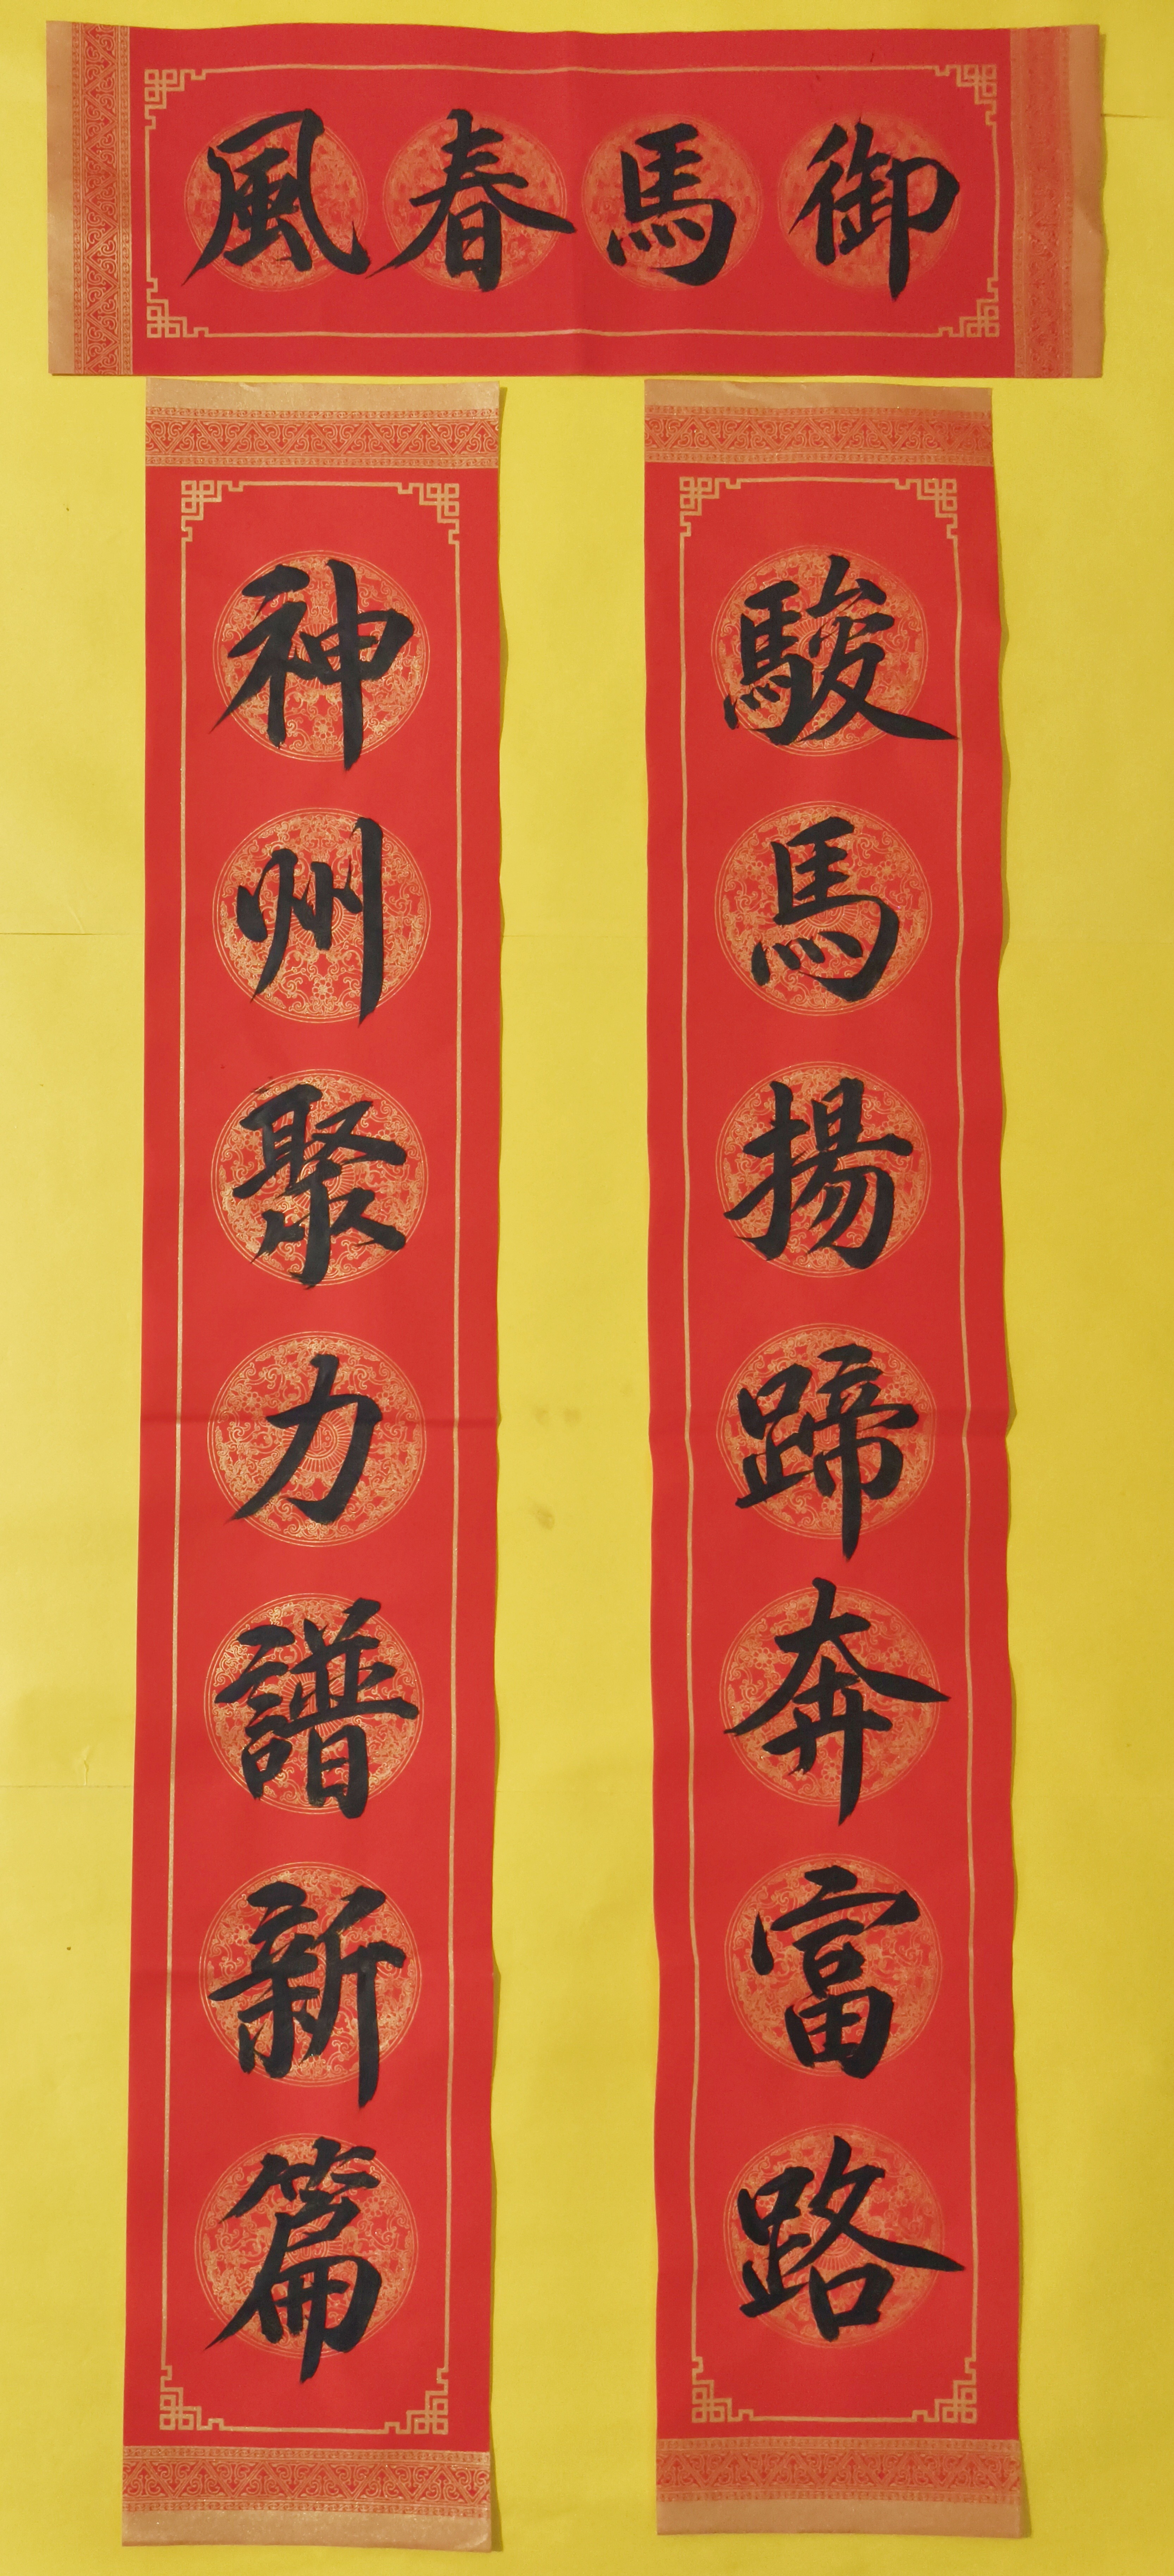 御馬春風
駿馬揚蹄奔富路
神州聚力譜新篇